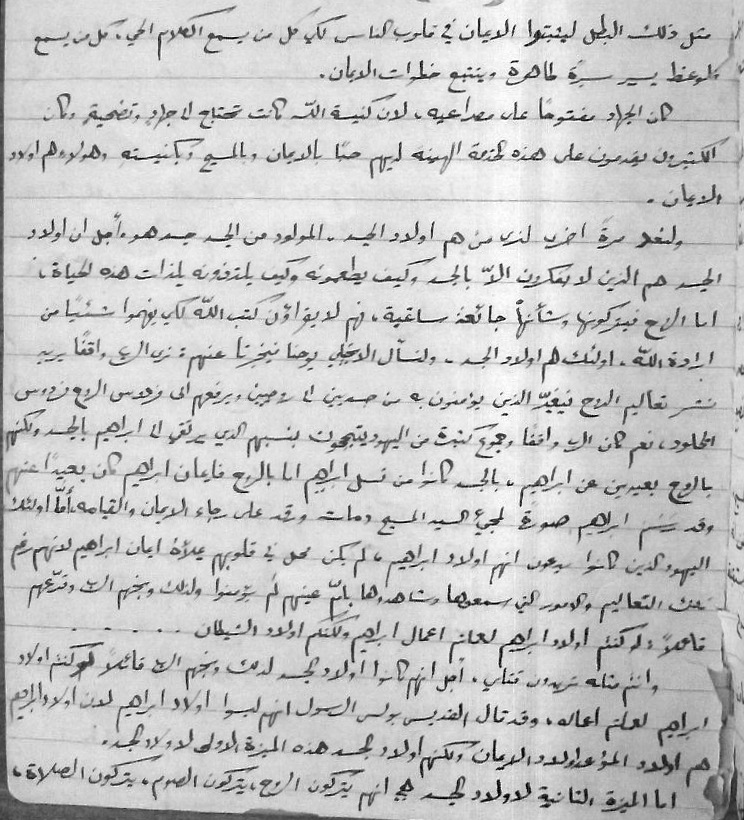 مثل ذلك البطل ليثبتوا الايمان في قلوب الناس لكي كل من يسمع الكلام الحي، كل من يسمع
الوعظ يسير سيرة طاهرة ويتتبع خطوات الايمان.
كان الجهاد مفتوحًا على مصراعيه، لان كنيسة الله كانت تحتاج الى جهاد وتضحية، وكان
الكثيرون يقدمون على هذه الخدمة المهيئة اليهم حبًا بالايمان وبالمسيح وبكنيسته وهؤلاء هم اولاد
الايمان.
ولنعد مرة اخرى لنرى من هم اولاد الجسد. المولود من الجسد جسد هو. أجل ان اولاد
الجسد هم الذين لا يفكرون الاّ بالجسد وكيف يطعمونه وكيف يلذذونه بلذات هذه الحياة،
اما الروح فيتركونها وشأنها جائعة ساغبة، فهم لا يقرأون كتب الله لكي يفهموا شيئًا من
ارادة الله. اولئك هم اولاد الجسد. ولنسأل الانجيلي يوحنا فيخبرنا عنهم: نرى الرب واقفًا يريد
نشر تعاليم الروح فيغيّر الذين يؤمنون به من جسديين الى روحيين ويرفعهم الى فردوس الروح فردوس
الخلود، نعم كان الرب واقفًا وجموع كثيرة من اليهود يتبجحون بنسبهم الذي يرتقي الى ابراهيم بالجسد ولكنهم
بالروح بعيدين عن ابراهيم، بالجسد كانوا من نسل ابراهيم اما بالروح فايمان ابراهيم كان بعيدًا عنهم
وقد رسم ابراهيم صورة لمجيء السيد المسيح ومات وقد على رجاء الايمان والقيامه، أمّا اولئك
اليهود الذين كانوا يدعون انهم اولاد ابراهيم، لم يكن محل في قلوبهم يملأه ايمان ابراهيم لانهم رغم
تلك التعاليم والامور التي سمعوها وشاهدوها بأمّ عينهم لم يؤمنوا ولذلك وبخهم الرب وقرّعهم
قائلاً: لو كنتم اولاد ابراهيم لعملتم اعمال ابراهيم ولكنكم اولاد الشيطان . . . . . .
وانتم مثله تريدون قتلي. أجل انهم كانوا اولاد الجسد لذلك وبخهم الرب قائلاً لو كنتم اولاد
ابراهيم لعملتم اعماله، وقد قال القديس بولس الرسول انهم ليسوا اولاد ابراهيم لان اولاد ابراهيم
هم اولاد الموعد اولاد الايمان ولكنهم اولاد الجسد هذه الميزة الاولى لاولاد الجسد.
اما الميزة الثانية لاولاد الجسد هي انهم يتركون الروح، يتركون الصوم، يتركون الصلاة،